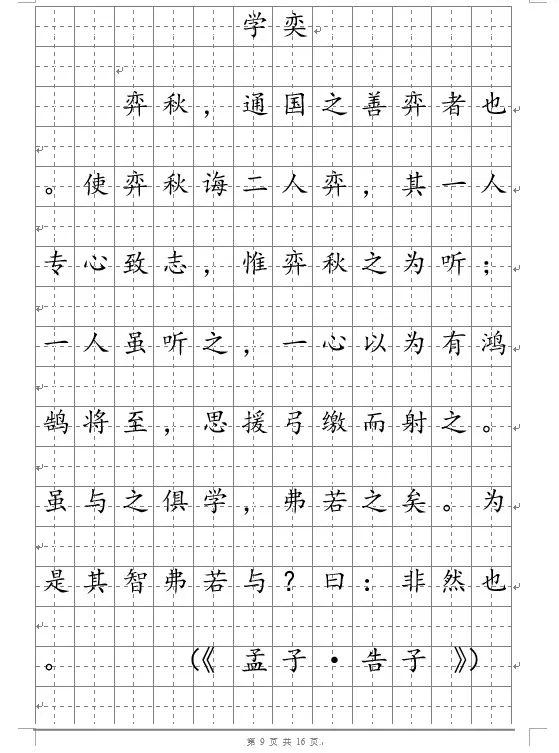 学奕
弈秋，通国之善弈者也
。使弈秋诲二人弈，其一人
专心致志，惟弈秋之为听；
一人虽听之，一心以为有鸿
鹄将至，思援弓缴而射之。
虽与之俱学，弗若之矣。为
是其智弗若与？曰：非然也
。 （《 孟子·告子 》）
第 9 页 共 16 页